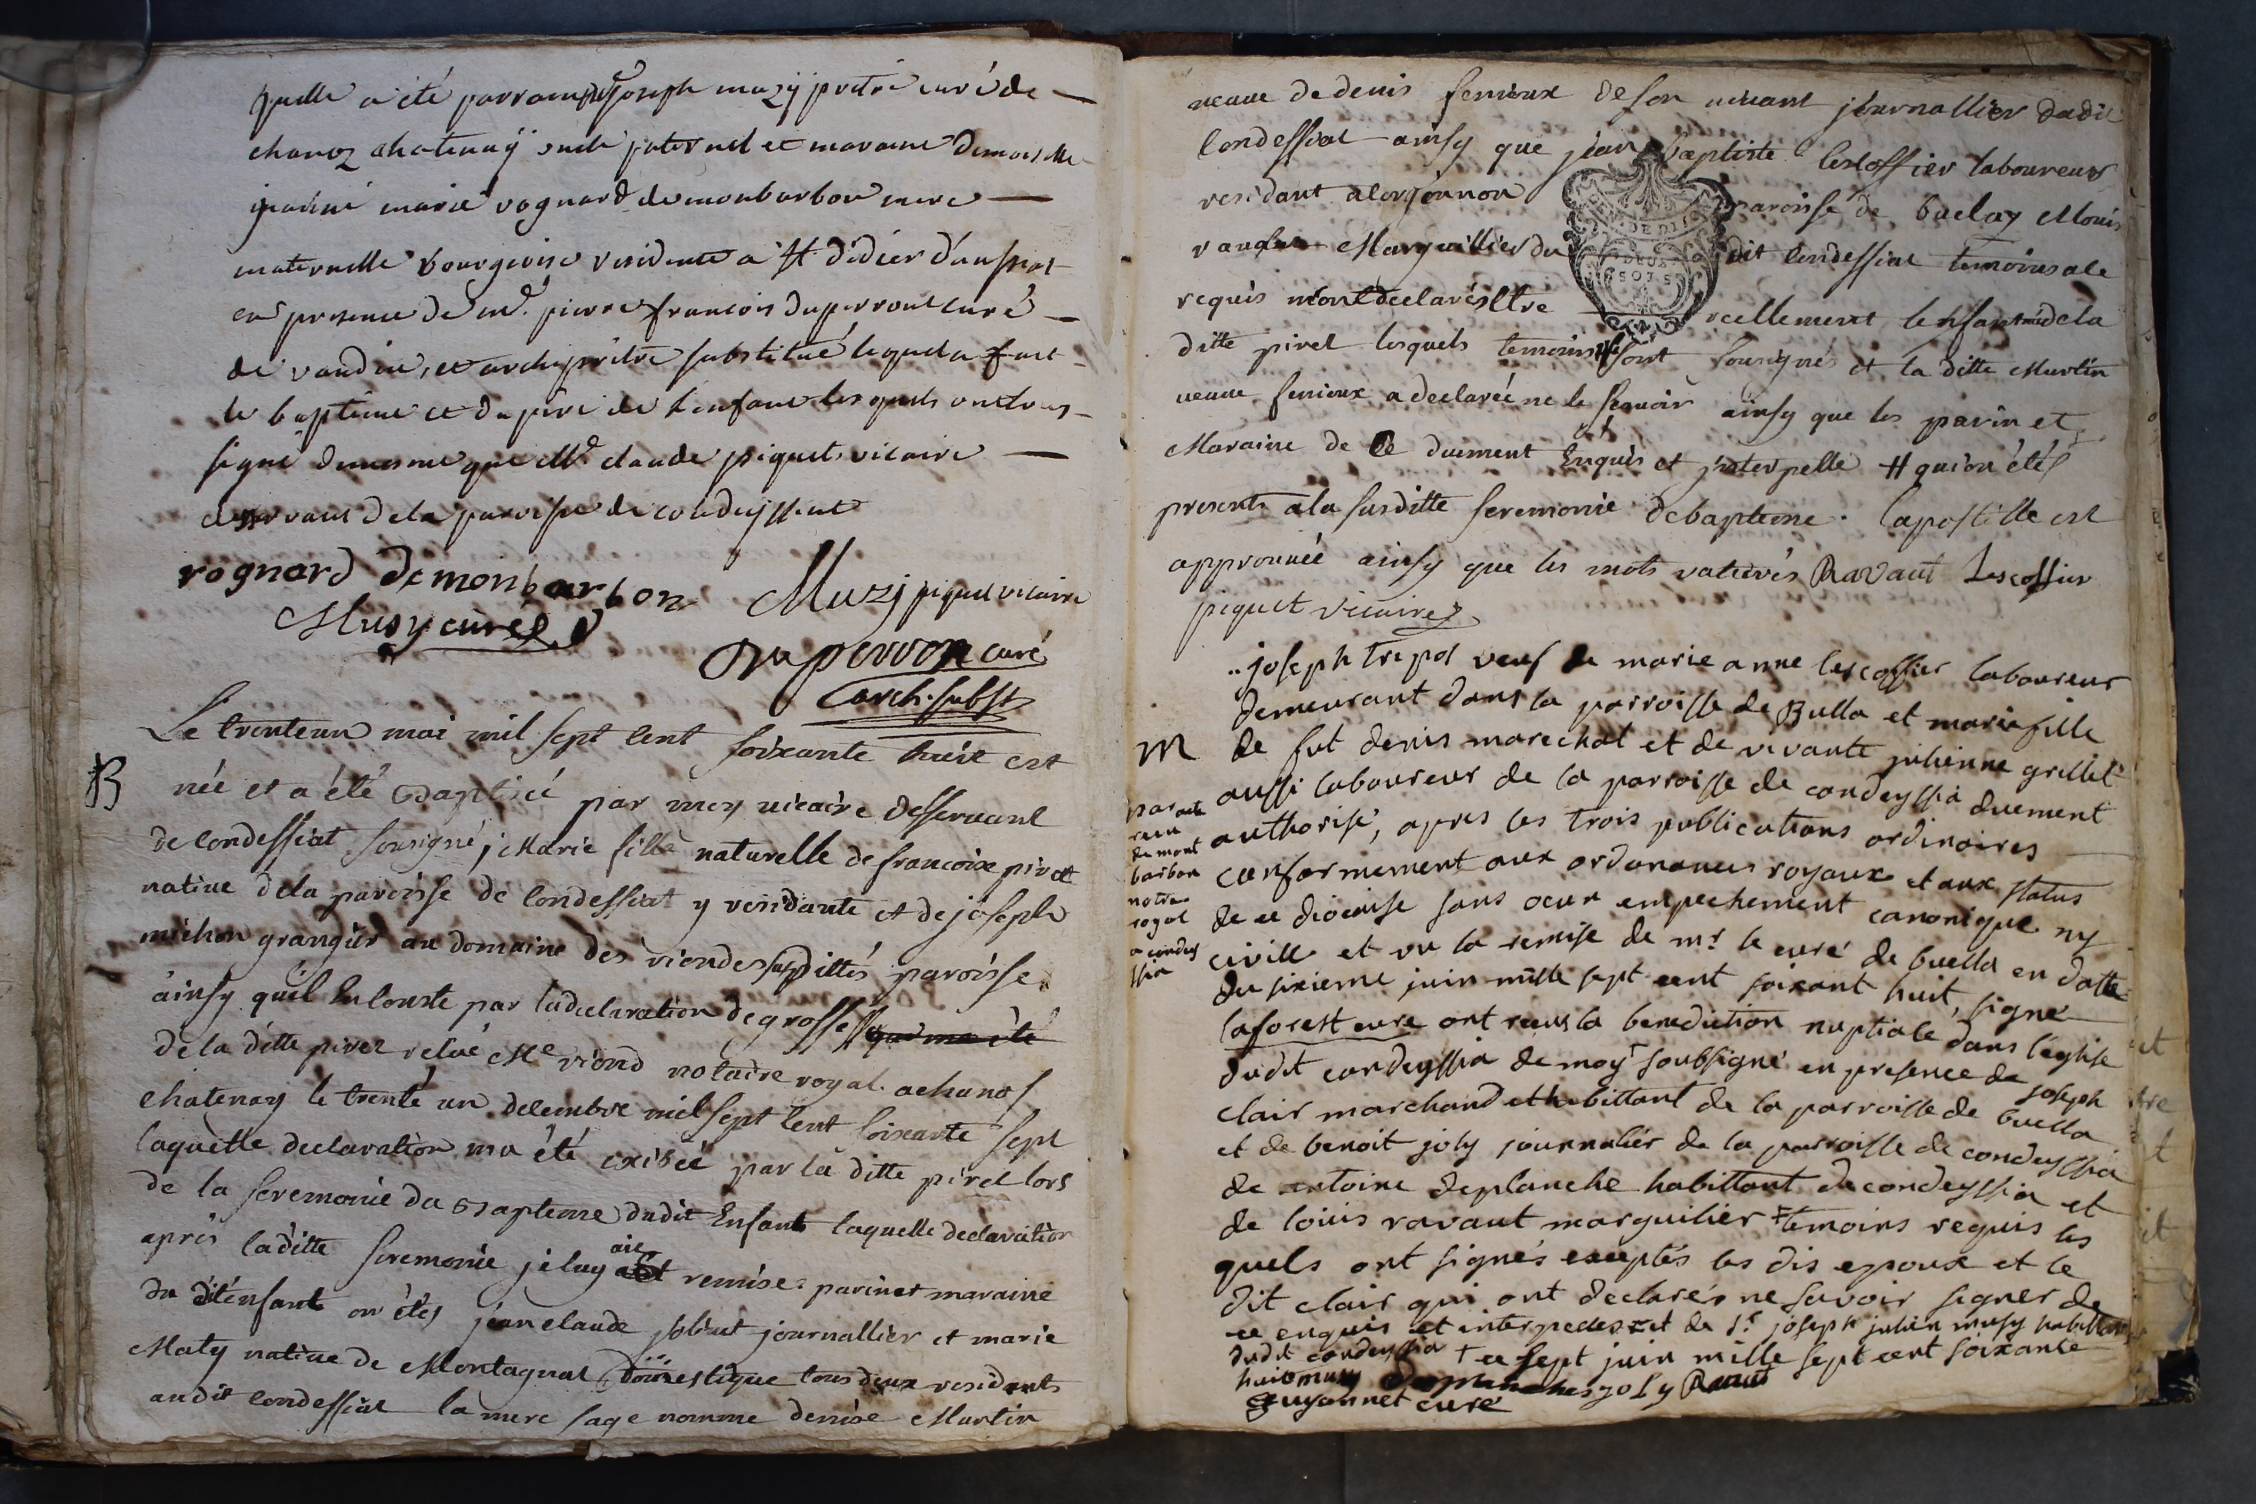 quelle a été parrain joseph muzÿ prètre curé de
chanoz chatenaÿ oncle paternel et maraine demoiselle
marie rognard de monbarbon mere
maternelle bourgeoise residente a St didier d'aussiat
en presence de md. pierre francois duperront curé
de vandin, et archiprètre substitué lequel a fait
le baptême et du pere de l'enfant lesquels ont sous
signé de mesme que Mre claude piquet vicaire
desservant de la paroisse de condeissiat
rognard de monbarbon Muzj piquet vicaire
Musy curé
Duperron curé
arch. subst
Le trenteun mai mil sept cent soixante huit est
B
née et a été baptisée par moy vicaire desservant
de Condessiat sousigné, Marie fille naturelle de francoise piret
native de la paroisse de Condessiat y residante et de joseph
michon granger au domaine des viondes susdittes paroisse
ainsy qu'il En Conste par la declaration de grossesse qui ma été
de la ditte piret reçue Me viond notaire royal a chanos
Chatenay le trente un decembre mil sept cent soixante sept
laquelle declaration ma été exibée par la ditte piret lors
de la seremonie du Bapteme dudit Enfant laquelle declaration
après laditte seremonie je luy ais remise parin et maraine
du dit enfant on étés jean claude joliet journallier et marie
Maty native de Montagnat Domestique tous deux residents
au dit Condessiat la mere sage nomme denise Martin
veuve de denis ferrieux de son vivant journallier dudit
Condessiat ainsy que jean Baptiste lescoffier laboureur
residant a paroisse de buelay & Louis
ravaut Marguillier du dit Condessiat temoins a ce
requis m'ont declarés Etre reellement l'enfant de la
ditte piret lesquels temoins se sont sousignés et la ditte Martin
veuve ferrieux a declarée ne le scavoir ainsy que les parin et
Maraine de Ce duement Enquis et jnterpellé # qui on étés
presents a la susditte seremonie de bapteme. l'apostille est
approuvée ainsy que les mots raturés Ravaut Lescoffier
piquet vicaire
joseph trepos veuf de marie anne lescoffier laboureur
demeurant dans la parroisse de Bulla et marie fille
M
de fut denis marechal et de vivante julienne grillet
aussi laboureur de la parroisse de condeyssia duement
authorisé, apres les trois publications ordinaires
conformement aux ordonances royaux et aux status
de ce diocaise sans ocun empechement canonique ny
civille et vu la remise de mr le curé de buella en datte
du sixieme juin mille sept cent soixant huit, signé
laforest cure ont recus la benediction nuptiale dans l'eglise
dudit condeyssia de moy soubsigné en presence de joseph
clair marchand et habittant de la parroisse de buella
et de benoit joly journalier de la parroisse de condeyssia
de antoine deplanche habittant de condeyssia et
de loüis ravaut marguilier + temoins requis les
quels ont signés exeptés les dis epoux et le
dit clair qui ont declarés ne savoir signer de
ce enquis et interpeles + et de Sr. joseph julien musy habittant
dudit condeyssia + ce sept juin mille sept cent soixante
huit musy deplanches joly Ravaut
guyonnet cure
par acte
recu
de mont
barbon
notre
royal
a condey
ssia